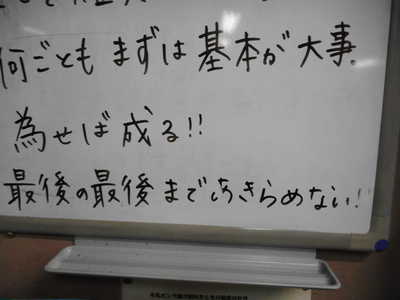 何ごともまずは基本が大事。
為せば成る!!
最後の最後まであきらめない!